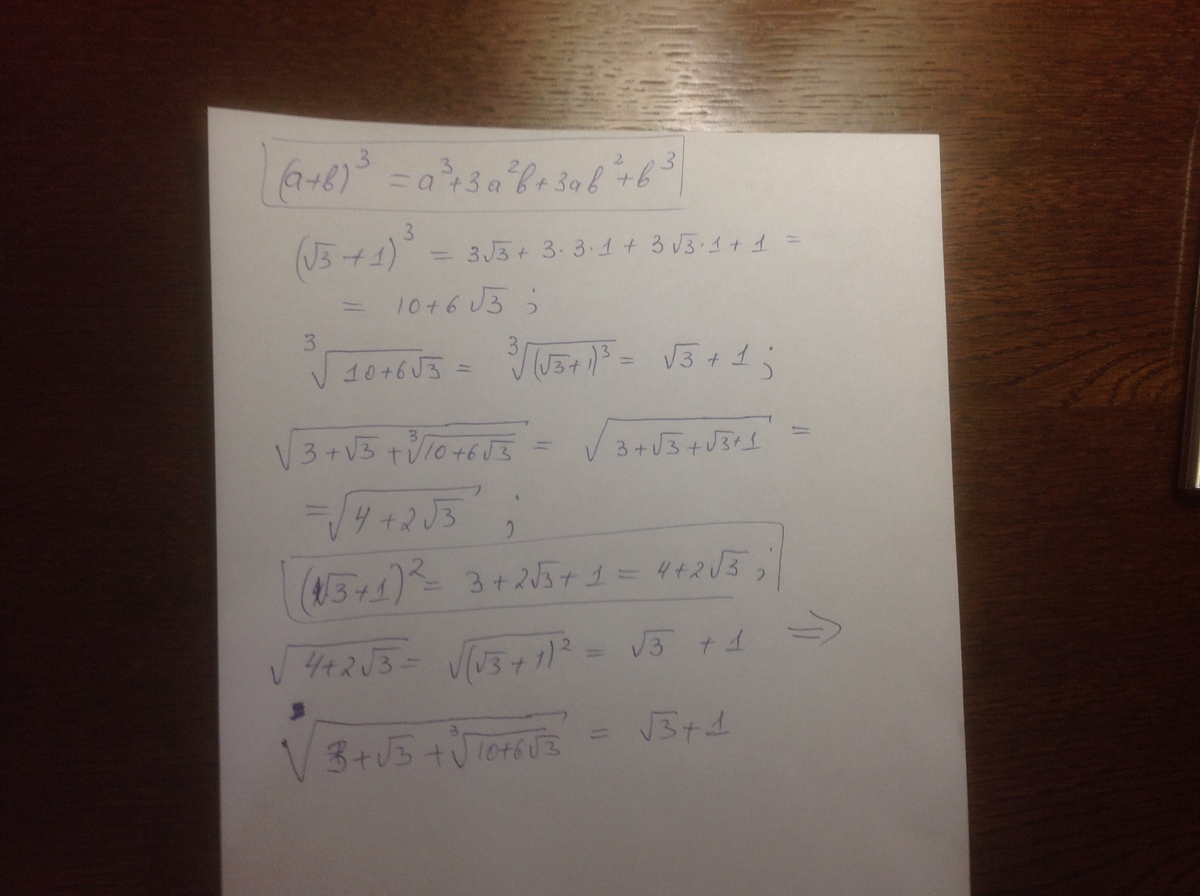 (a+b)³ = a³+3a²b+3ab²+b³
(√3 +1)³ = 3√3 + 3·3·1 + 3√3·1 + 1 =
= 10+6√3 ;
∛(10+6√3) = ∛((√3+1)³) = √3 + 1 ;
√(3+√3 + ∛(10+6√3)) = √(3+√3+√3+1) =
= √(4+2√3) ;
(√3+1)² = 3+2√3+1 = 4+2√3 ;
√(4+2√3) = √((√3+1)²) = √3 + 1 ⇒
√(3+√3 + ∛(10+6√3)) = √3+1